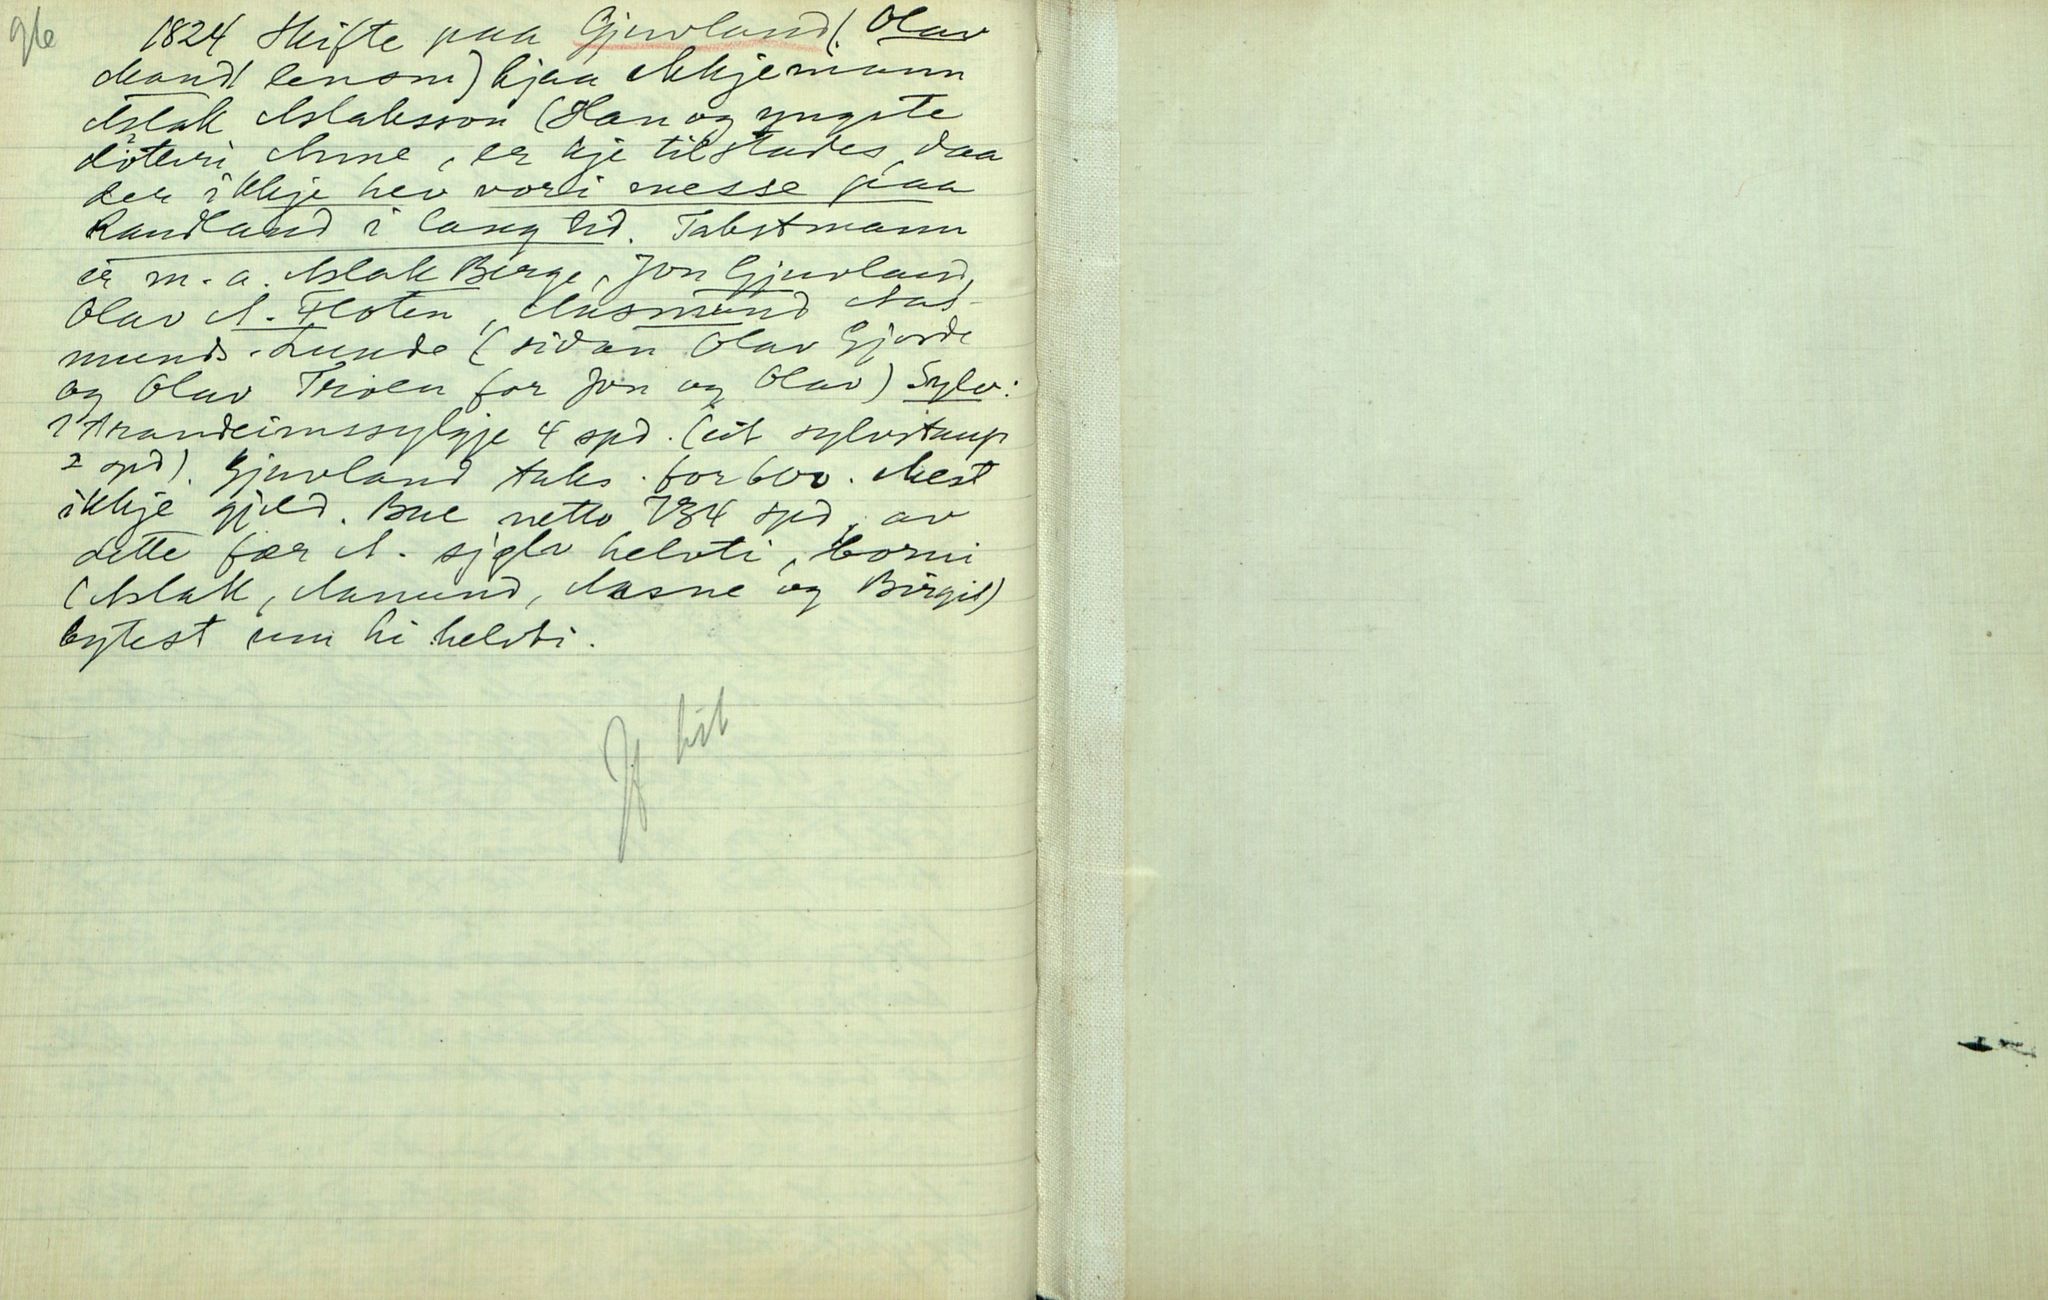 96
1824 Skifte paa Gjuvland (. Olav
lensm) hjaa ekkjemann
Aslak Aslaksson (Han og yngste
doteri, Anne, er kje tilstades, daa
der ikkje hev vori messe paa
Raudland i lang tid. Takstmann
er m. a. Aslak Berge, Jon Gjuvland,
Olav A. Floten, Aasmund Aas-
munds. Lunde (sidan Olav Gjorde
og Olav Troen for Jon og Olav) Sylv:
1 trondeimssylgje 4 spd. (eit sylvstaup
2 spd). Gjuvland taks. for 600. Mest
ikkje gjeld. Bue netto 734 spd, av
dette fær A. sjølv helvti, borni
(Aslak, Aamund, Aasne og Birgit)
bytest um hi helvti.
hit